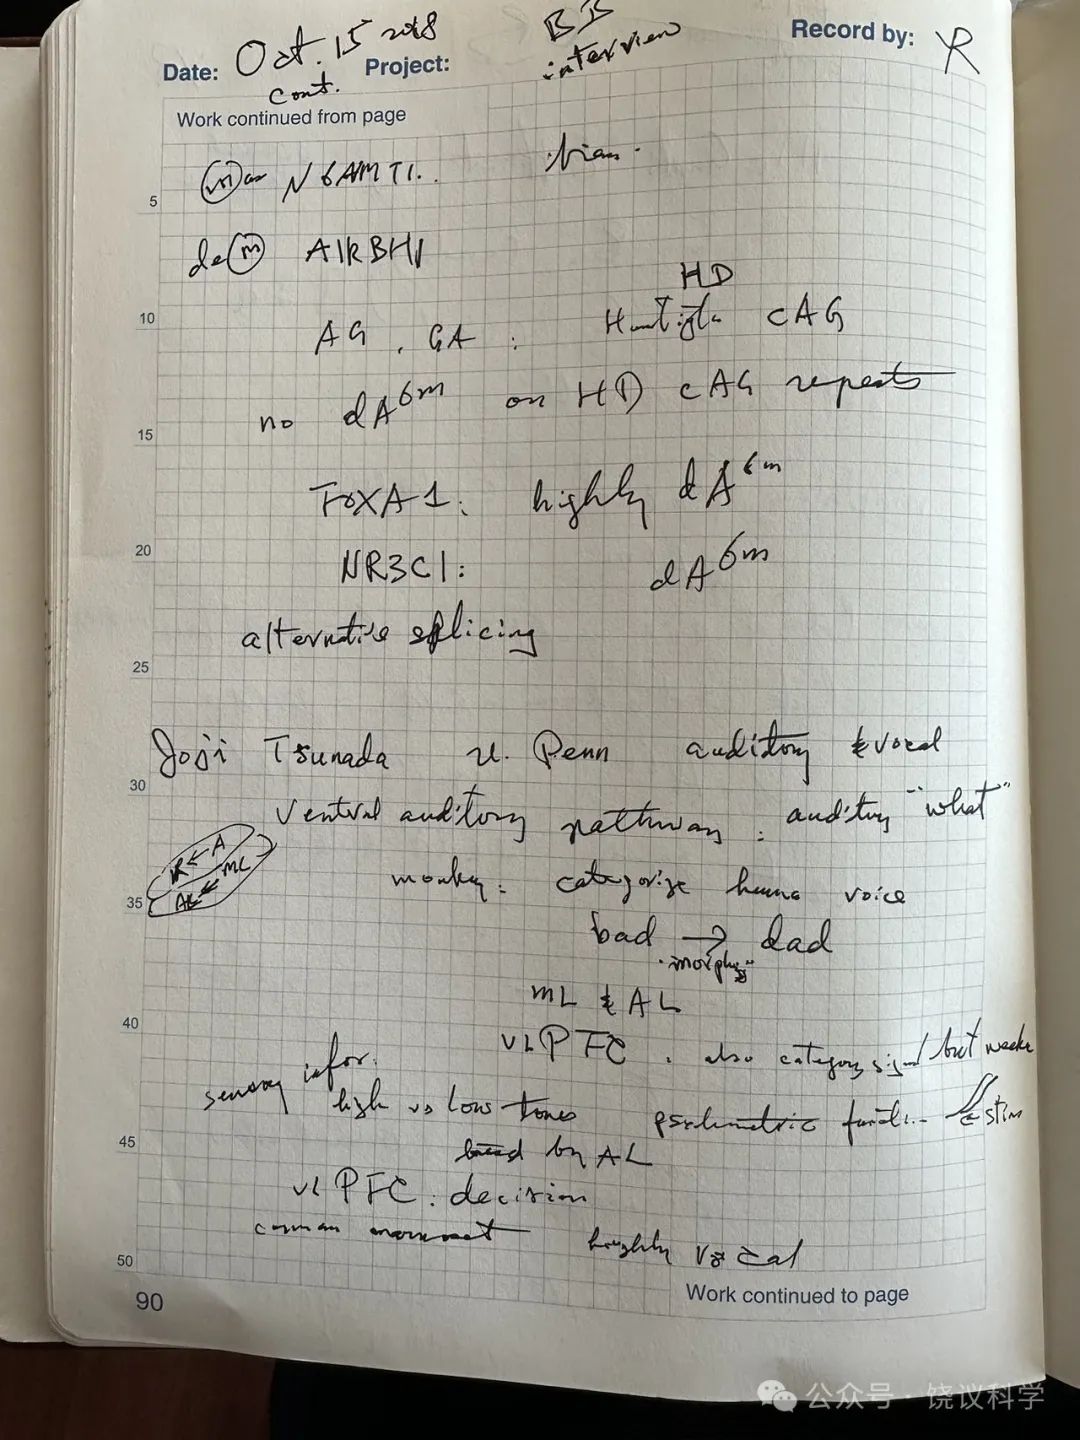 Date: Oct. 15 2018 Project: BB interview Record by: YR
cont.
Work continued from page
5
N6AMT1.
de(m) AlkBH1
HD
10
AG, GA: CAG
no dA6m on HD CAG repeats
15
FOXA1: highly dA6m
20
NR3C1: dA6m
alternative splicing
25
Joji Tsunada U. Penn auditory & vocal
30
Ventral auditory pathway: auditory "what"
R ← A
AL ← ML
monkey: categorize human voice
35
bad → dad
"morphing"
mL & AL
40
vLPFC. also category signal but weaker
sensory infor.
high vs low tones psychometric functi.. stim
45
by AL
vLPFC: decision
common marmoset highly vocal
50
90
Work continued to page
公众号 · 饶议科学